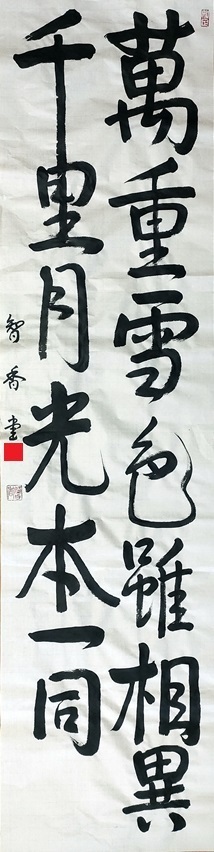 萬重雪色雖相異
千里月光本一同
智香書